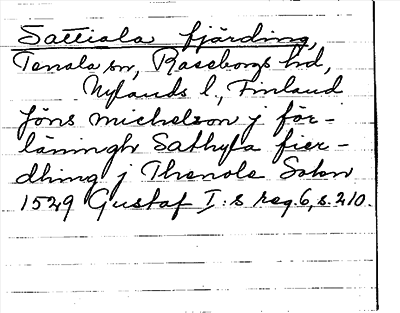 Sattiala fjärding,
Tenala sn, Raseborgs hd,
Nylands l., Finland
Jöns michelson j för-
läningh Sathyla fier-
dhing j Thenola Sokn
1529 Gustaf I:s reg. 6, s. 210.